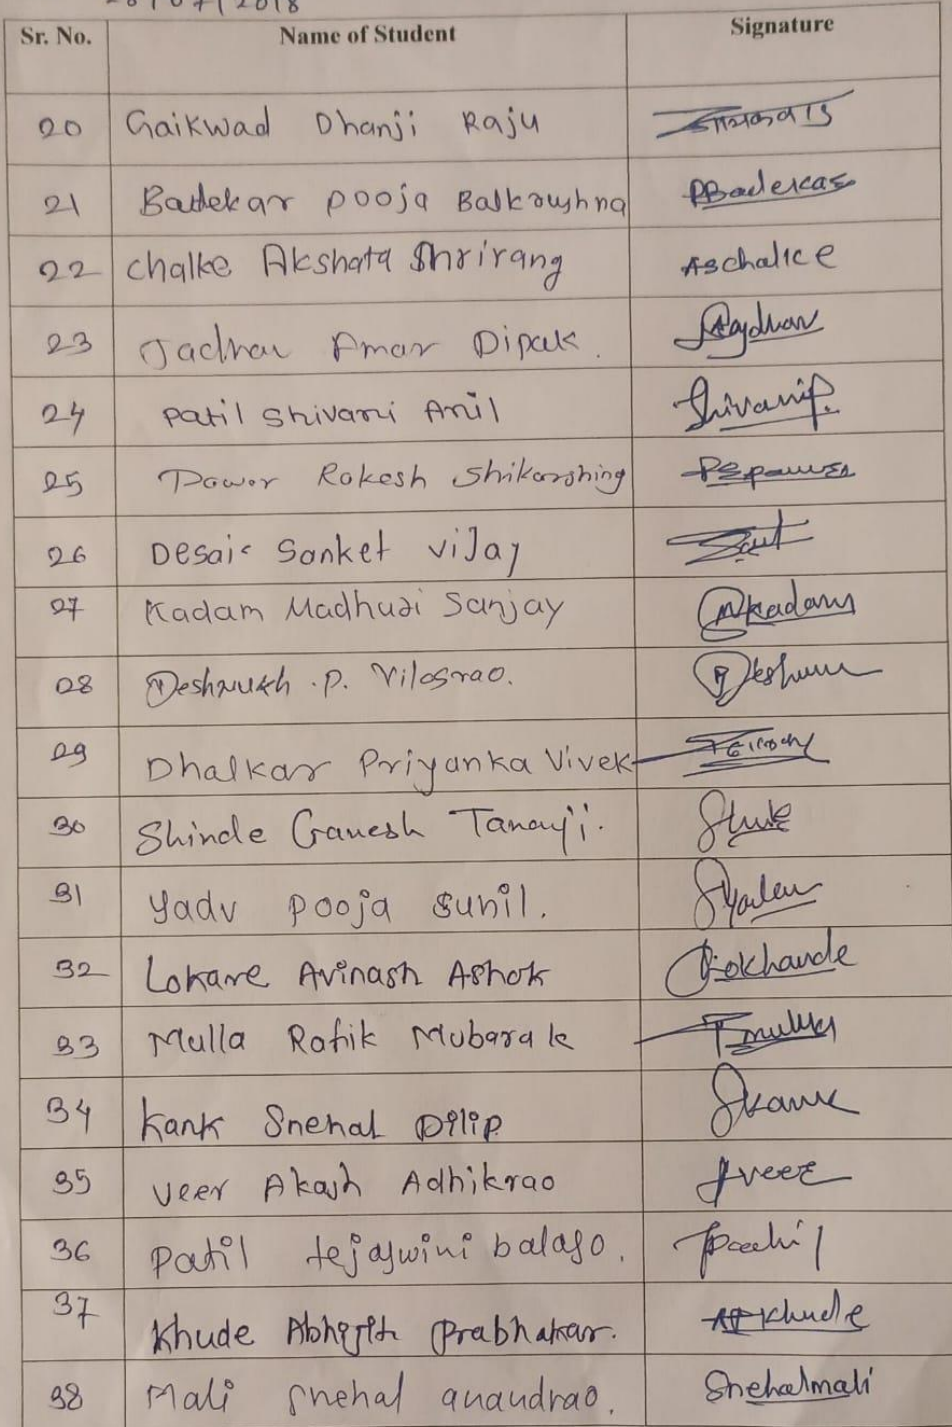 07/2018
Sr. No. Name of Student Signature
20 Gaikwad Dhanji Raju गायकवाड
21 Badekar pooja Balkrushna PBadekar
22 Chalke Akshata Shrirang ASchalke
23 Jadhav Amar Dipak.
24 Patil Shivani Anil ShivaniP.
25 Pawar Rakesh Shikarshing RSpawar
26 Desai Sanket viJay
27 Kadam Madhuri Sanjay Mkadam
28 Deshmukh .P. Vilasrao.
29 Dhalkar Priyanka Vivek
30 Shinde Ganesh Tanaji.
31 Yadv pooja sunil.
32 Lokare Avinash Ashok Lokhande
33 Mulla Rafik Mubarak
34 Kank Snehal Dilip Skank
35 Veer Akash Adhikrao Aveer
36 Patil tejaswini balaso.
37 Khude Abhijit Prabhakar. APKhude
38 Mali Snehal anandrao. Snehalmali